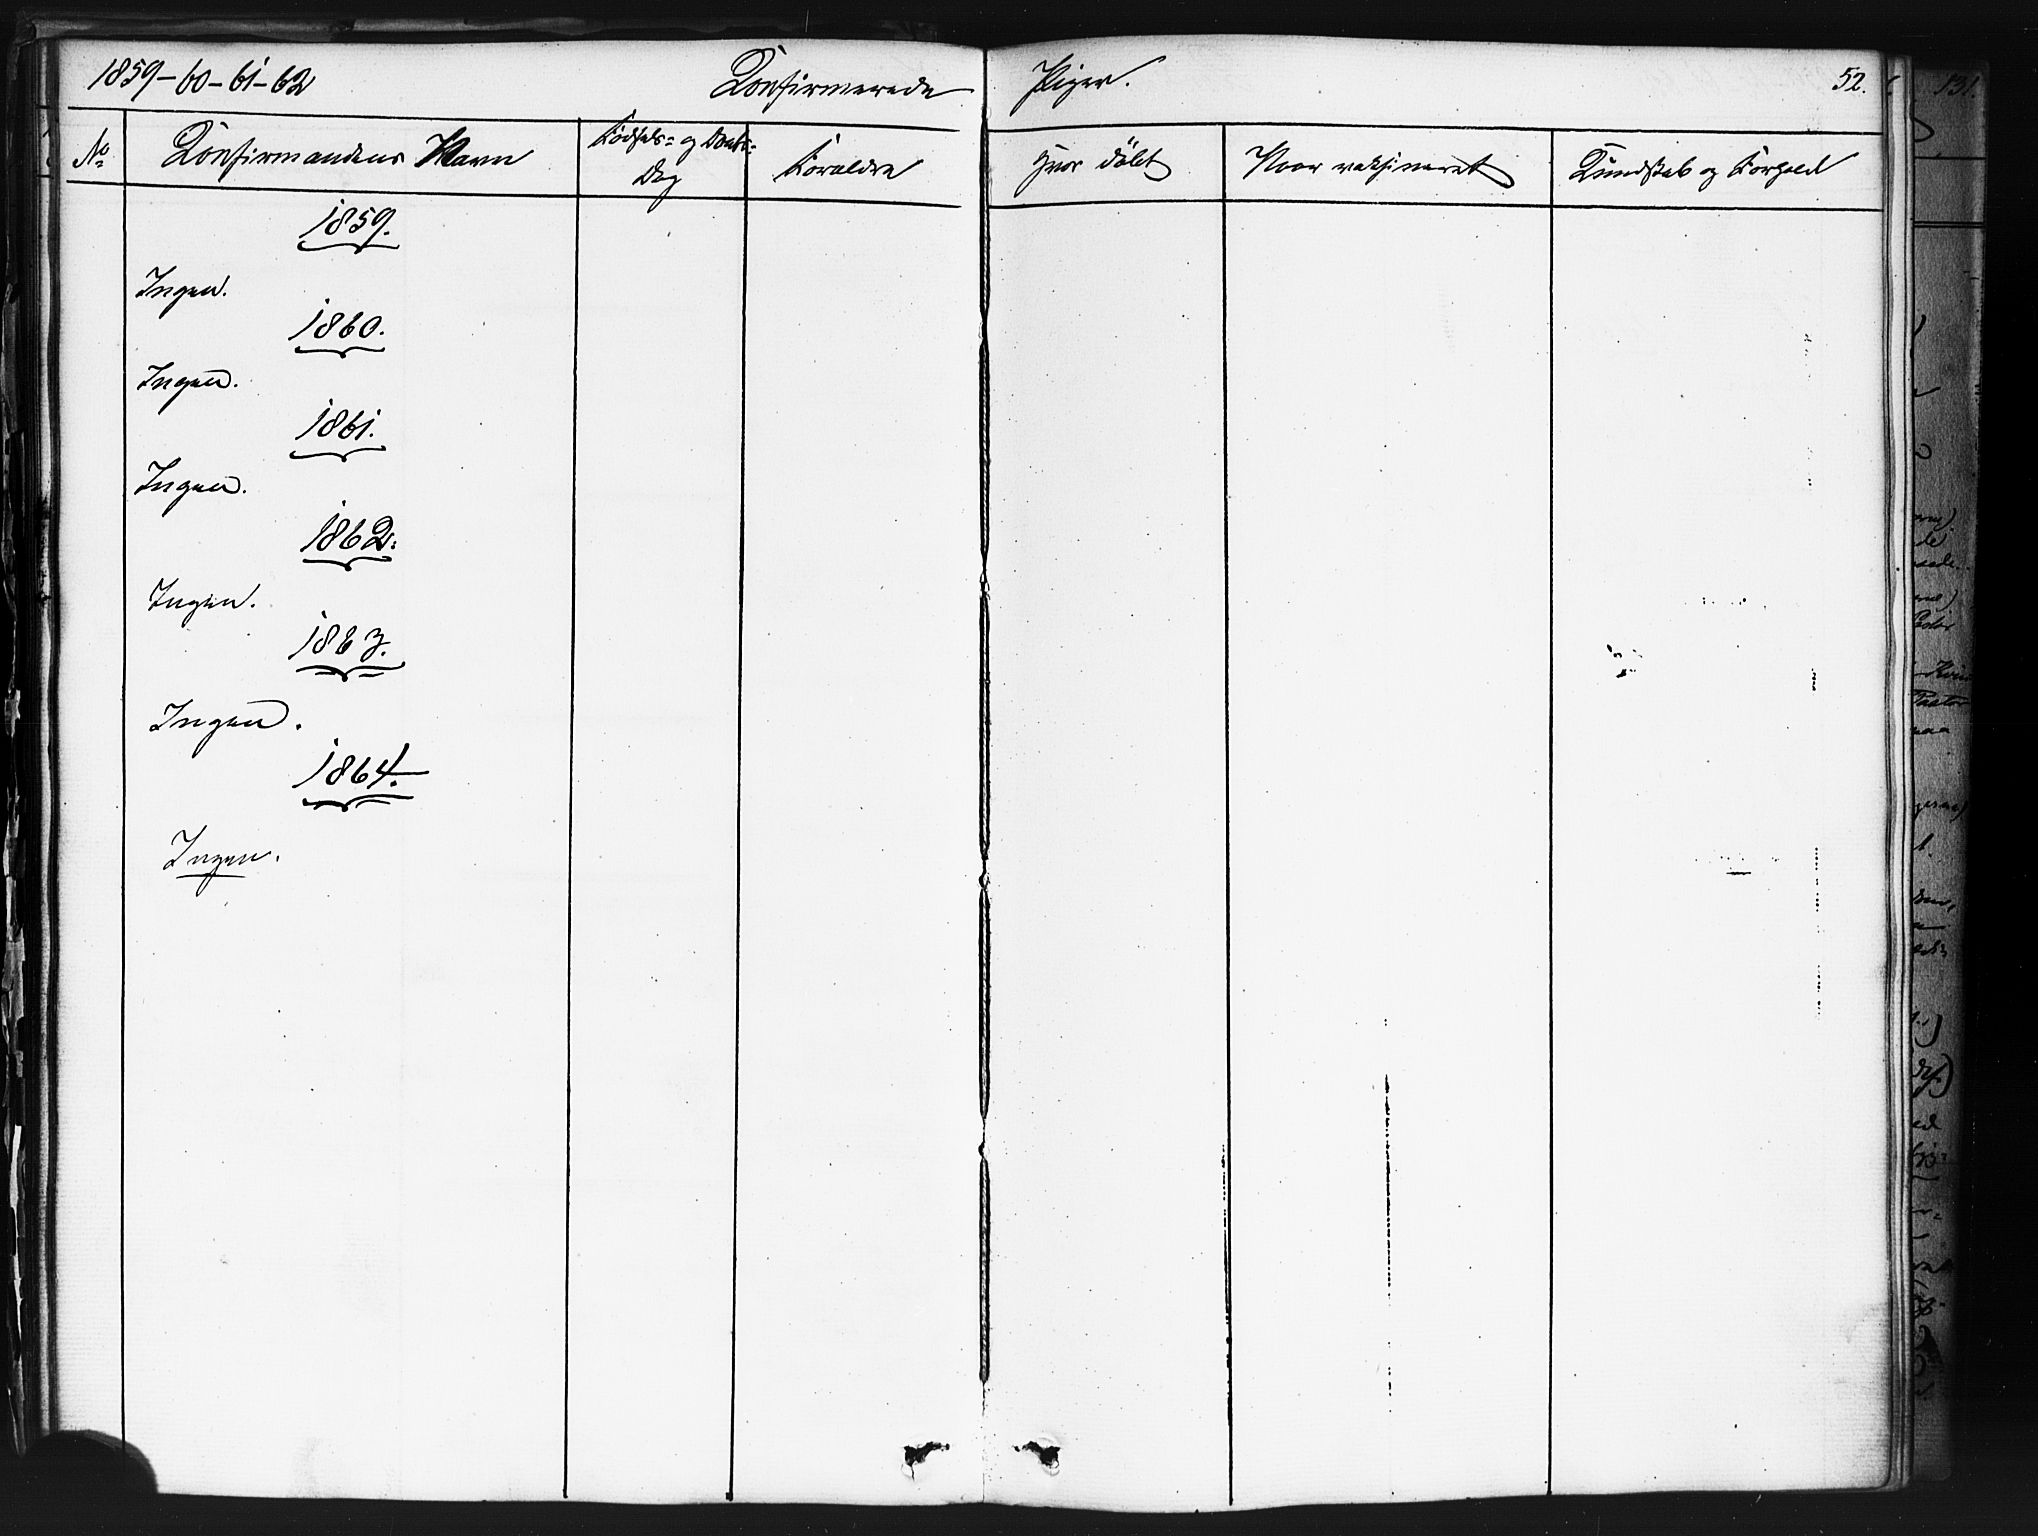 1859-60-61-62 Konfirmerede Piger. 52.
No Konfirmandens Navn Fødsels- og Daabs- Dag Forældre Hvor døbt Naar vaksineret Kundskab og Forhold
1859.
Ingen.
1860.
Ingen.
1861.
Ingen.
1862.
Ingen.
1863.
Ingen.
1864.
Ingen.
131.